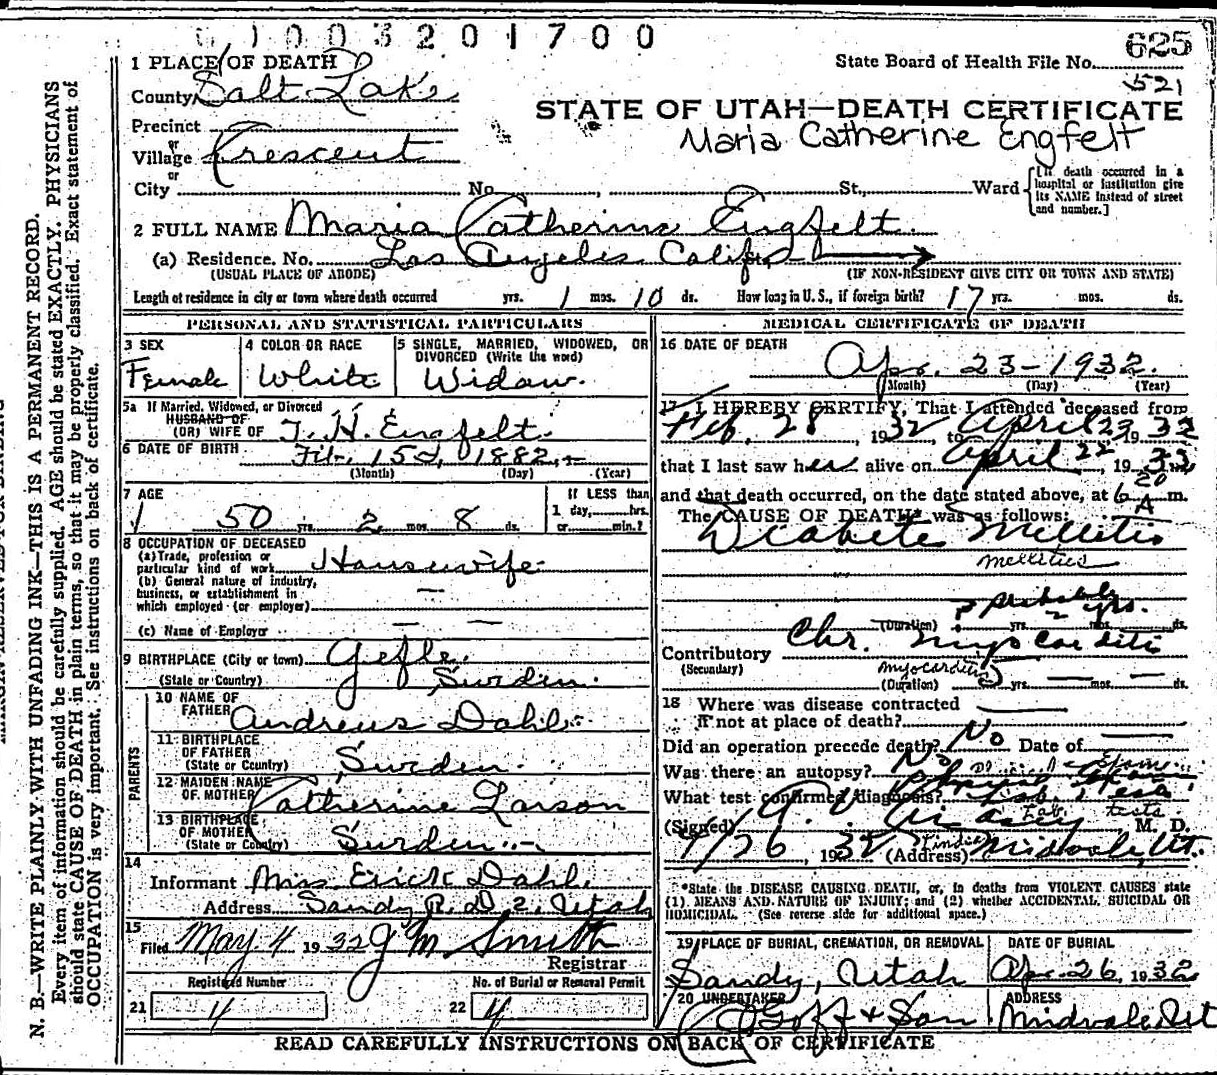 0 1 0 0 3 2 0 1 7 0 0
625
State Board of Health File No.
521
1 PLACE OF DEATH
County Salt Lake
STATE OF UTAH—DEATH CERTIFICATE
Maria Catherine Engfelt
Precinct
or
Village Crescent
or
City No. St., Ward
[If death occurred in a hospital or institution give its NAME instead of street and number.]
2 FULL NAME Maria Catherine Engfelt
(a) Residence. No. Los Angeles Calif
(USUAL PLACE OF ABODE) (IF NON-RESIDENT GIVE CITY OR TOWN AND STATE)
Length of residence in city or town where death occurred yrs. 1 mos. 10 ds. How long in U. S., if foreign birth? 17 yrs. mos. ds.
PERSONAL AND STATISTICAL PARTICULARS
3 SEX Female
4 COLOR OR RACE White
5 SINGLE, MARRIED, WIDOWED, OR DIVORCED (Write the word) Widow.
5a If Married, Widowed, or Divorced
HUSBAND OF
(OR) WIFE OF T. H. Engfelt.
6 DATE OF BIRTH Feb. 15, 1882
(Month) (Day) (Year)
7 AGE 50 yrs. 2 mos. 8 ds.
If LESS than 1 day, hrs. or min.?
8 OCCUPATION OF DECEASED
(a) Trade, profession or particular kind of work Housewife
(b) General nature of industry, business, or establishment in which employed (or employer) —
(c) Name of Employer — —
9 BIRTHPLACE (City or town) Gefle.
(State or Country) Sweden.
PARENTS
10 NAME OF FATHER Andreus Dahl
11 BIRTHPLACE OF FATHER (State or Country) Sweden.
12 MAIDEN NAME OF MOTHER Catherine Larson
13 BIRTHPLACE OF MOTHER (State or Country) Sweden.
14
Informant Erick Dahl
Address Sandy R. D. 2. Utah
15
Filed May 4 1932 J M Smith
Registrar
Registered Number
21 4
No. of Burial or Removal Permit
22 4
MEDICAL CERTIFICATE OF DEATH
16 DATE OF DEATH
Apr. 23-1932.
(Month) (Day) (Year)
17 I HEREBY CERTIFY, That I attended deceased from
Feb. 28, 1932, to April 23 1932
that I last saw her alive on April 22, 1932
and that death occurred, on the date stated above, at 6 20 A m.
The CAUSE OF DEATH* was as follows:
Diabetes Mellitis
mellitus
probably
(Duration) ? 2 yrs. mos. ds.
Contributory Chr. myocarditis
(Secondary) myocarditis
(Duration) 5 yrs. — mos. — ds.
18 Where was disease contracted
if not at place of death?
Did an operation precede death? No Date of
Was there an autopsy? No
What test confirmed diagnosis? Lab. Tests
Lab. tests
(Signed) M. D.
4/26, 1932 (Address) Midvale, Ut.
*State the DISEASE CAUSING DEATH, or, in deaths from VIOLENT CAUSES state
(1) MEANS AND NATURE OF INJURY; and (2) whether ACCIDENTAL, SUICIDAL OR
HOMICIDAL. (See reverse side for additional space.)
19 PLACE OF BURIAL, CREMATION, OR REMOVAL
Sandy, Utah
DATE OF BURIAL
Apr. 26, 1932
20 UNDERTAKER
Goff & Son
ADDRESS
Midvale Ut
READ CAREFULLY INSTRUCTIONS ON BACK OF CERTIFICATE
N. B.—WRITE PLAINLY WITH UNFADING INK—THIS IS A PERMANENT RECORD.
Every item of information should be carefully supplied. AGE should be stated EXACTLY. PHYSICIANS
should state CAUSE OF DEATH in plain terms, so that it may be properly classified. Exact statement of
OCCUPATION is very important. See instructions on back of certificate.